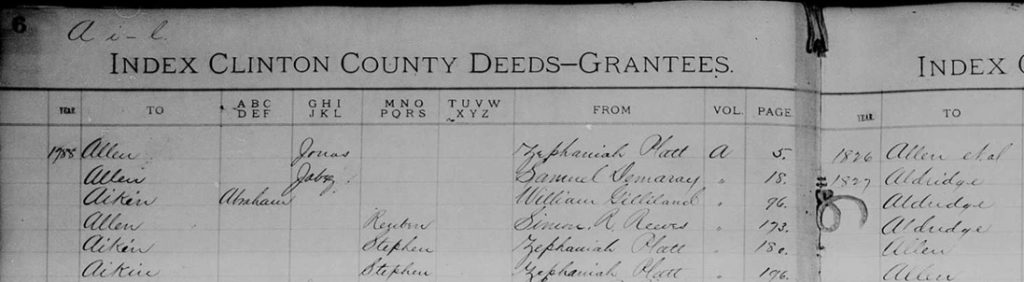 6
A i-l
INDEX CLINTON COUNTY DEEDS-GRANTEES.
YEAR. TO ABC DEF GHI JKL MNO PQRS TUVW XYZ FROM VOL. PAGE.
1788 Allen Jonas Zephaniah Platt A 5.
Allen Jabez Samuel Demaray " 18.
Aiken Abraham William Gilliland " 96.
Allen Reuben Simon R. Reeves " 173.
Aiken Stephen Zephaniah Platt " 180.
Aikin Stephen Zephaniah Platt " 196.
INDEX C
YEAR. TO
1826 Allen et al
1827 Aldridge
Aldridge
Aldridge
Allen
Allen